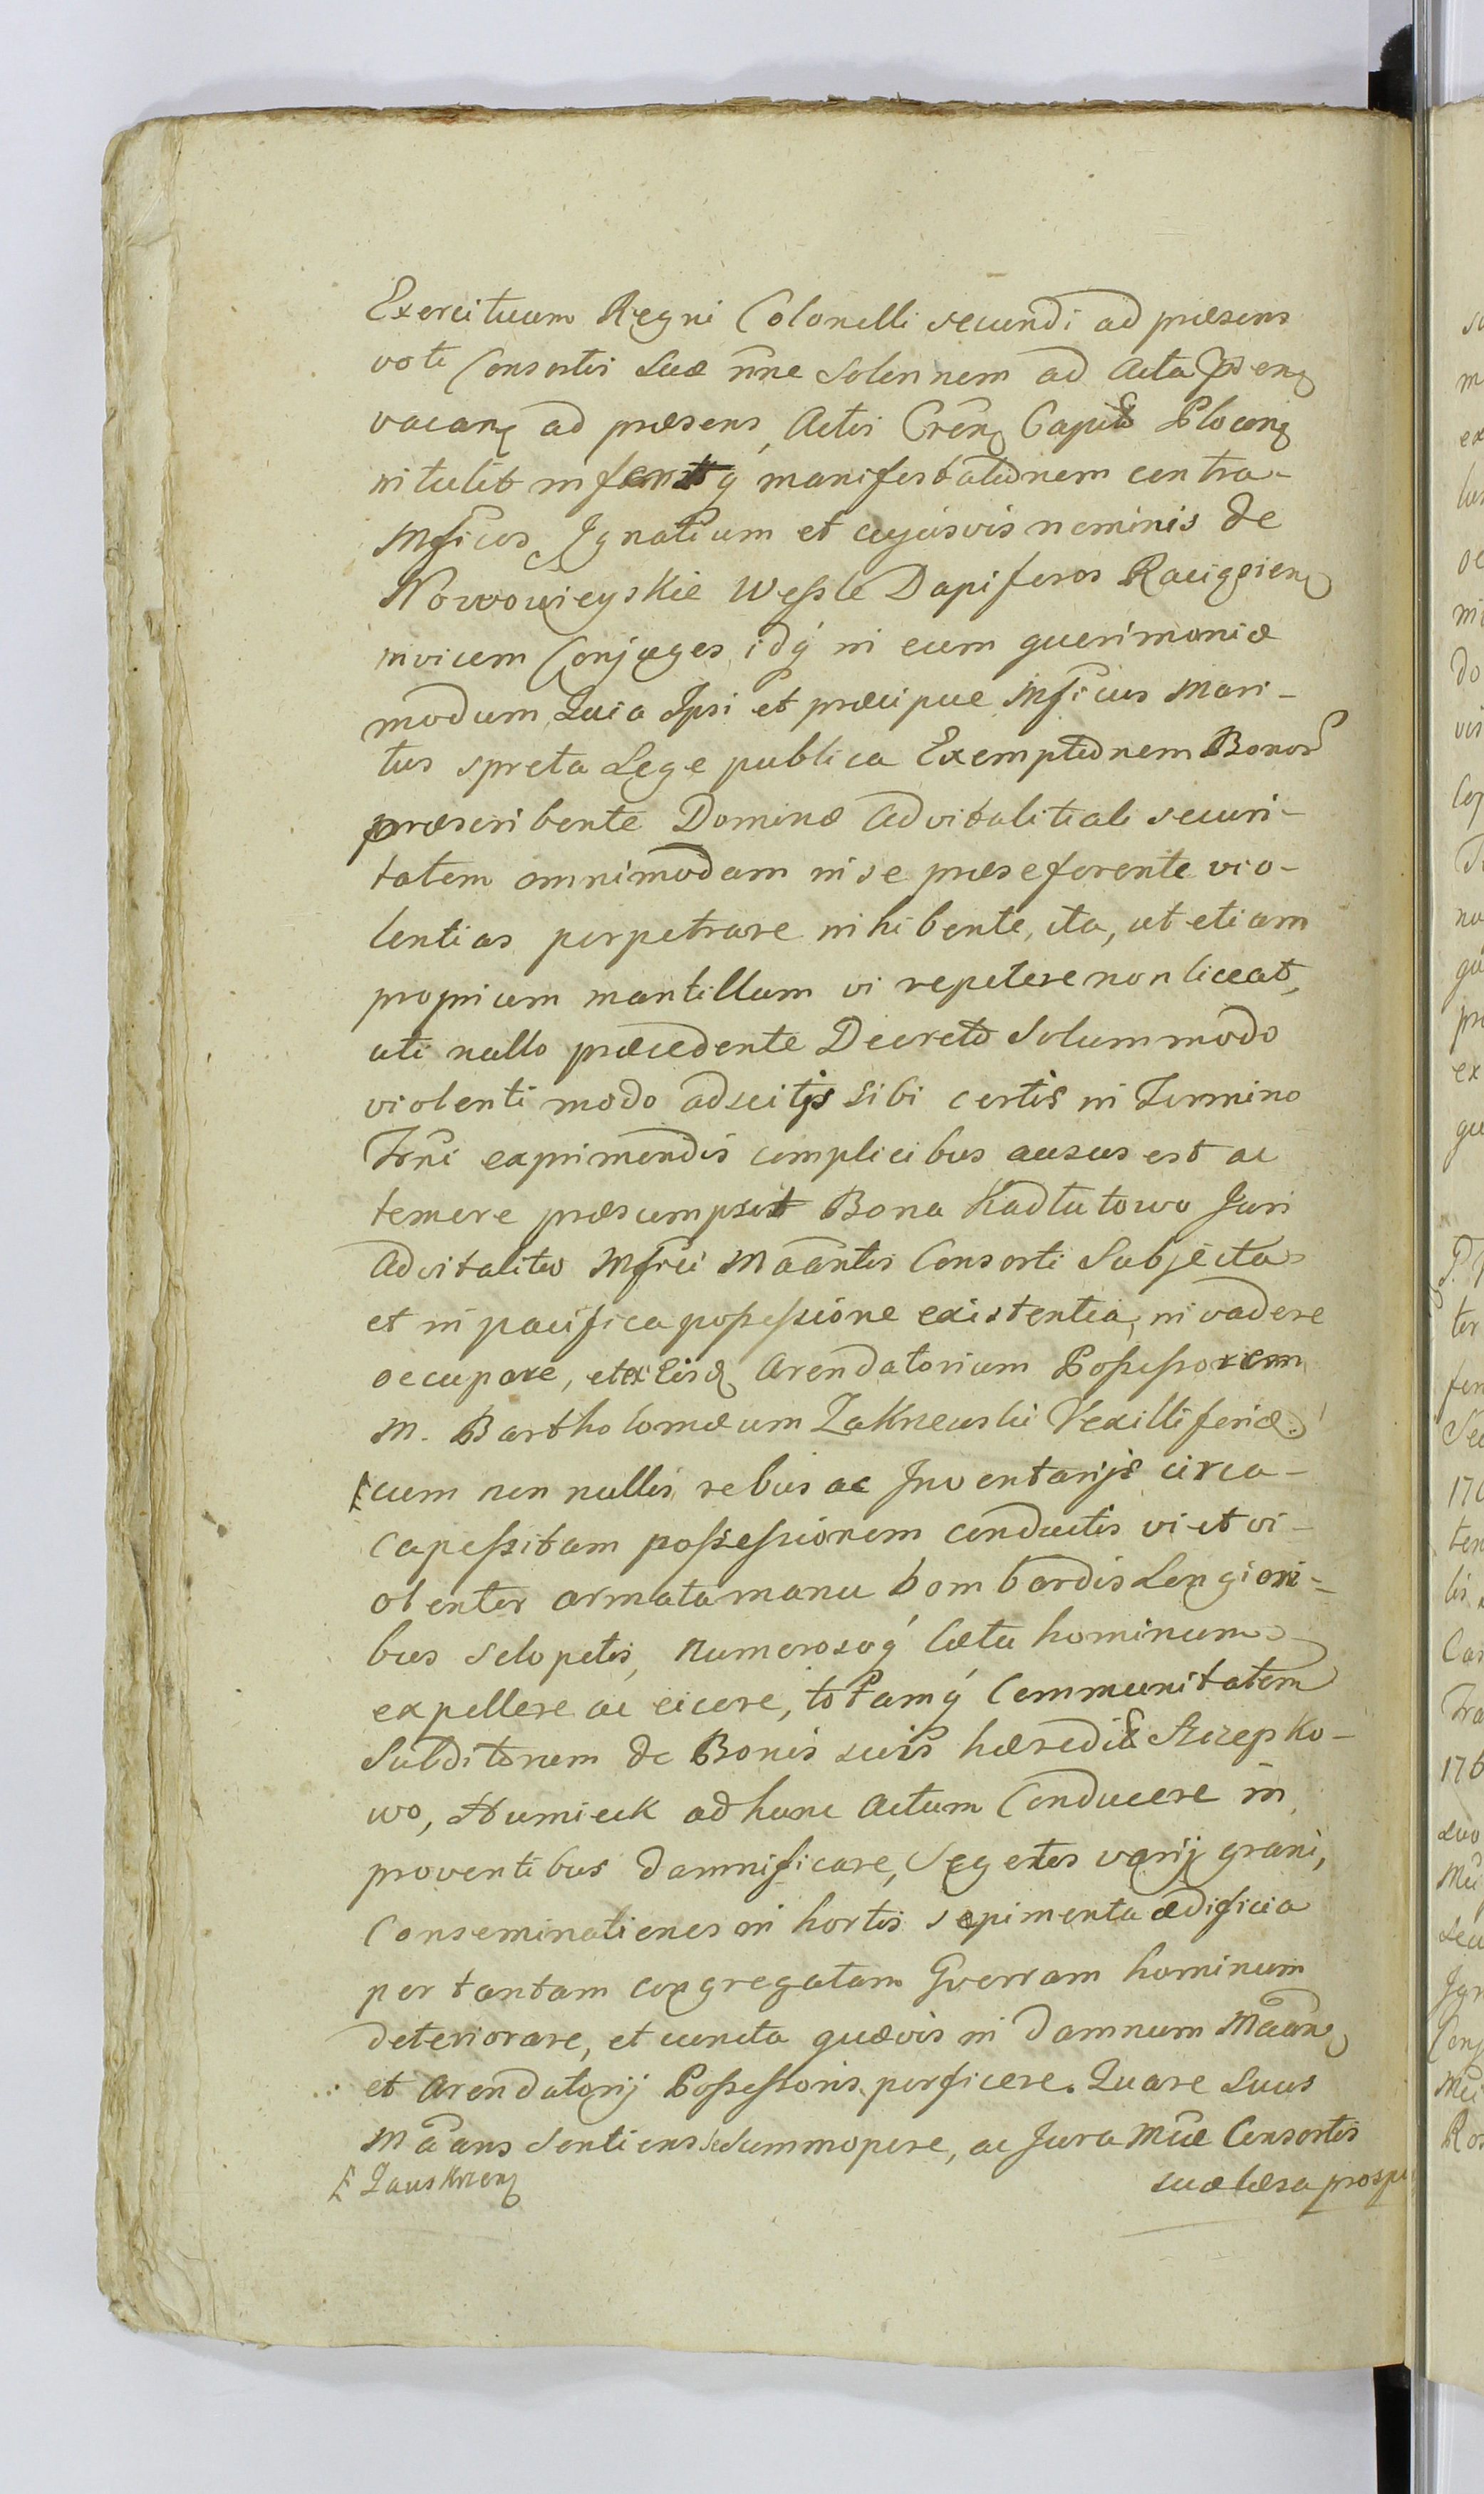 Exercituum Regni Colonelli secundi ad præsens
voti Consortis Suæ nne Solennem ad Acta
vacanꝫ ad præsens, Actis Crenꝫ Capit Plocenꝫ
intulit infertq́ manifestationem contra-
Mficos Ignatium et cujusvis nominis de
Nowowieyskie Wessle Dapiferos Raciąscienꝫ
invicem Conjuges, idq́ in eum querimoniæ
modum, Quia Ipsi et præcipue Mficus Mari-
tus spreta Lege publica Exemptionem Bonor
præscribente Dominæ Advitalitiali securi-
tatem omnimodam in se præseferente vio-
lentias perpetrare inhibente, ita, ut etiam
proprium mantillum vi repetere non liceat,
uti nullo præcedente Decreto Solummodo
violenti modo adscitijs sibi certis in Termino
Trni exprimendis complicibus ausus est ac
temere præsumpsit Bona Kadłutowo Juri
Advitalit Mfici Maantis Consorti Subjecta
et in pacifica possessione existentia, invadere
occupare, et ex Eisd Arendatorium Possessorem
M. Bartholomæum Zakrzewski Vexilliferiæ
cum non nullis rebus ac Inventarijs circa-
capessitam possessionem conductis vi et vi-
olenter armata manu bombardis Longiori-
bus Sclopetis, numerosoq́ Cœtu hominum
expellere ac eicere, totamq́ Communitatem
Subditorum de Bonis suis hæredit Szczepko-
wo, Humieck ad hunc actum Conducere in
proventibus damnificare, Segetes varij grani,
Conseminationes in hortis sepimenta ædificia
per tantam congregatam Guerram hominum
deteriorare, et cuncta quævis in damnum Maanꝫ
et Arendatorij Possessoris perficere. Quare Suus
Maans Sentiens se Summopere, ac Jura Mcæ Consortis
suæ læsa prospi
Zauskrzenꝫ